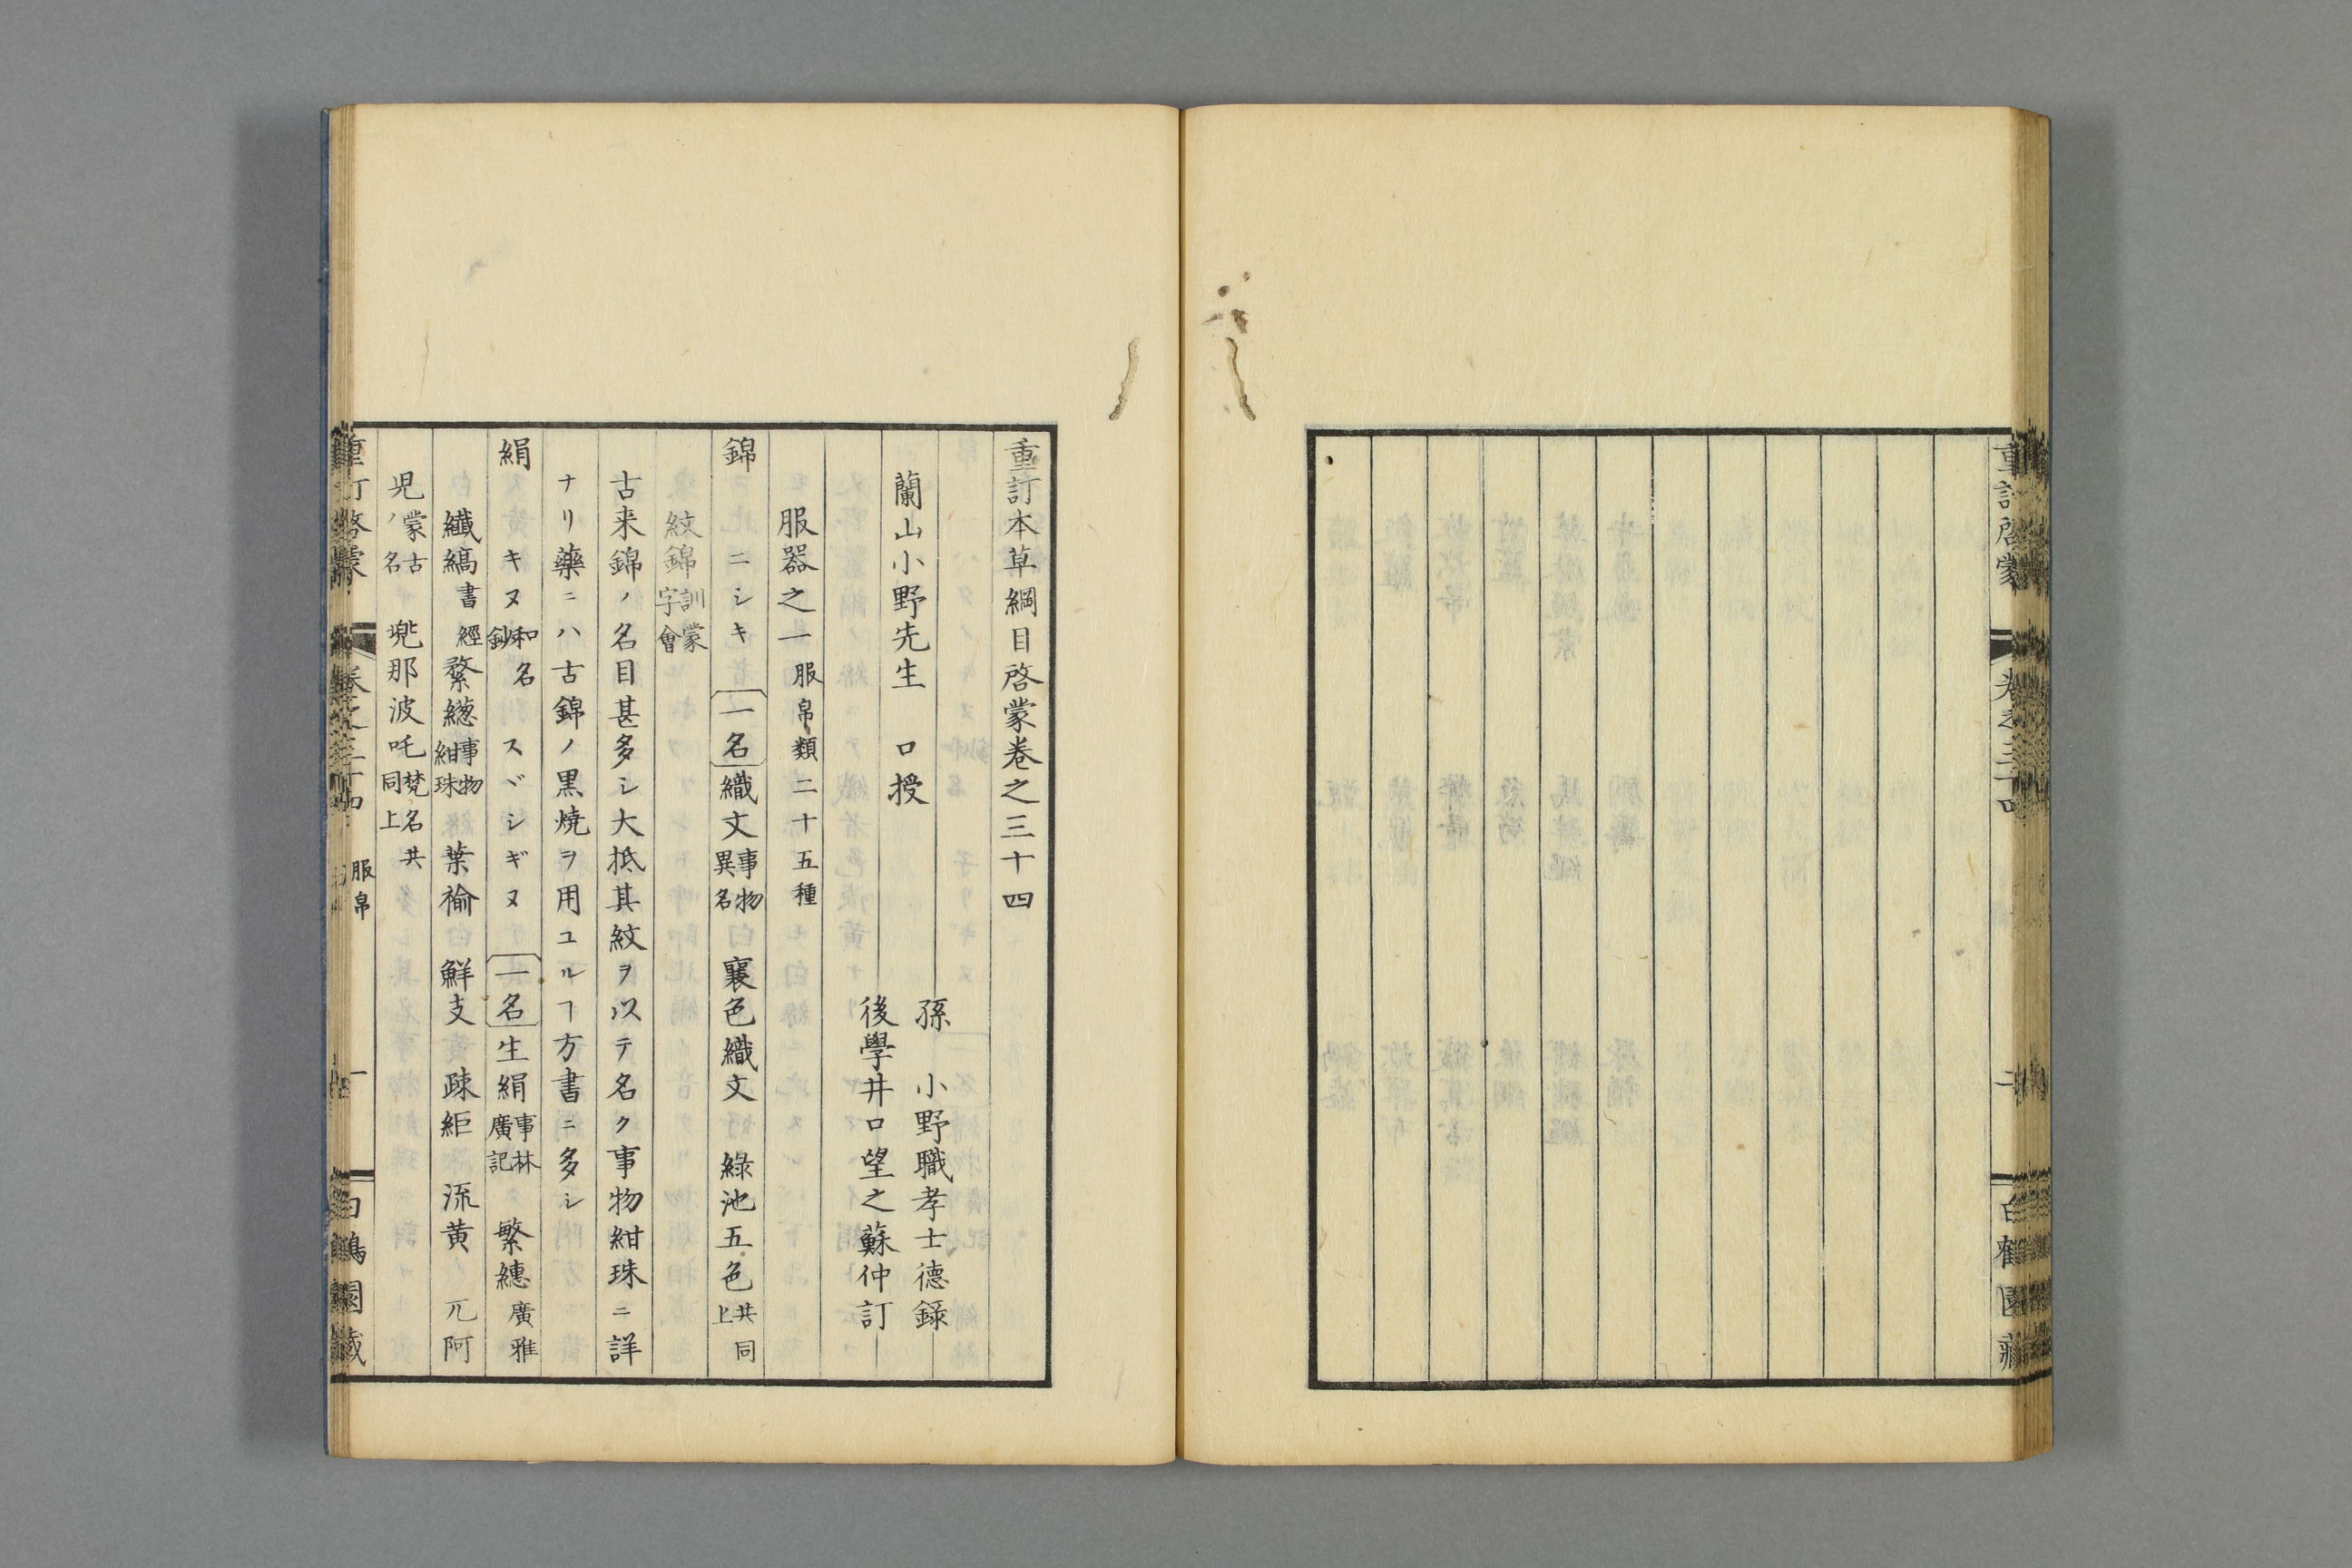 重訂本草綱目啓蒙巻之三十四
蘭山小野先生　口授
孫　小野職孝士德錄
後學井口望之蘇仲訂
服器之一　服帛類二十五種
錦　ニシキ　一名　織文　事物異名　襄色織文　綠池五色　共同上
紋錦　訓蒙字會
古来錦ノ名目甚多シ大抵其紋ヲ以テ名ク事物紺珠ニ詳
ナリ藥ニハ古錦ノ黒焼ヲ用ユルヿ方書ニ多シ
絹　キヌ　和名鈔　スヾシギヌ　一名　生絹　事林廣記　繁總　廣雅
纎縞　書經　緐總　事物紺珠　葉褕　鮮支　疎䋎　流黄　兀阿
児　蒙古ノ名　兠那波吒　梵名共同上
服帛
一
重訂啓蒙
巻之三十四
二
白鶴園藏